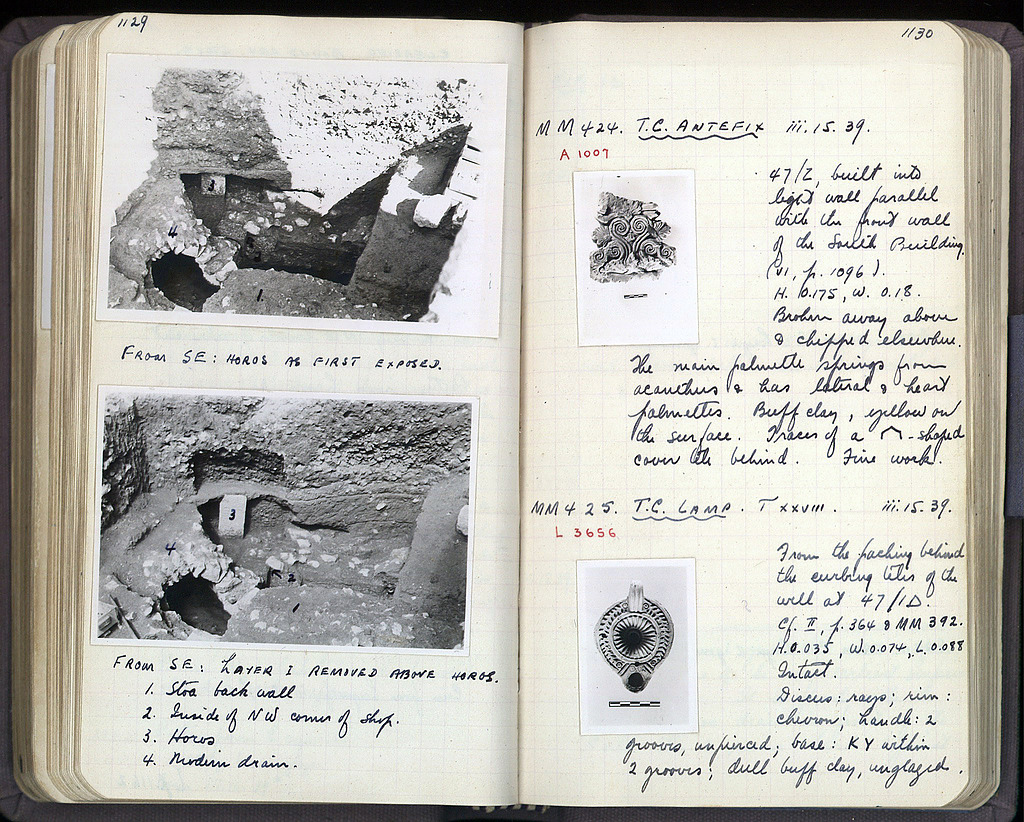 1129
3
4
1.
FROM SE: HOROS AS FIRST EXPOSED.
3
4
2
1
FROM SE: LAYER I REMOVED ABOVE HOROS.
1. Stoa back wall
2. Inside of NW corner of shop.
3. Horos
4. Modern drain.
1130
MM 424. T.C. ANTEFIX iii.15.39.
A 1007
47/Ζ, built into
light wall parallel
with the front wall
of the South Building
(VI, p. 1096).
H. 0.175, W. 0.18.
Broken away above
& chipped elsewhere.
The main palmette springs from
acanthus & has lateral & heart
palmettes. Buff clay, yellow on
the surface. Traces of a ︿-shaped
cover tile behind. Fine work.
MM 425. T.C. LAMP. T XXVIII. iii.15.39.
L 3656
From the packing behind
the curbing tiles of the
well at 47/ΙΔ.
Cf. II, p. 364 & MM 392.
H. 0.035, W. 0.074, L. 0.088
Intact.
Discus: rays; rim:
chevron; handle: 2
grooves, unpierced; base: KY within
2 grooves; dull buff clay, unglazed.